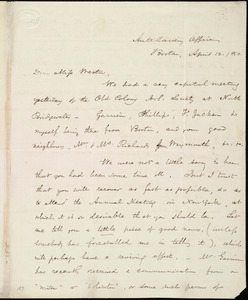 Anti Slavery Office,
Boston, April 12. 1850.
Dear Miss Weston,
We had a very capital meeting
yesterday of the Old Colony A.S. Society at North
Bridgewater - Garrison, Phillips, F. Jackson &
myself being there from Boston, and your good
neighbors, Mr & Mrs. Richards of Weymouth, &c. &c.
We were not a little sorry to hear
that you had been some time ill. But I trust
that you will recover as fast as possible, so as
to attend the Annual Meeting in New York, at
which it is so desirable that you should be. Let
me tell you a little piece of good news, (unless
somebody has forestalled me in telling it), which
will perhaps have a reviving effect. - Mr. Garrison
has recently received a communication from a
or some such person of